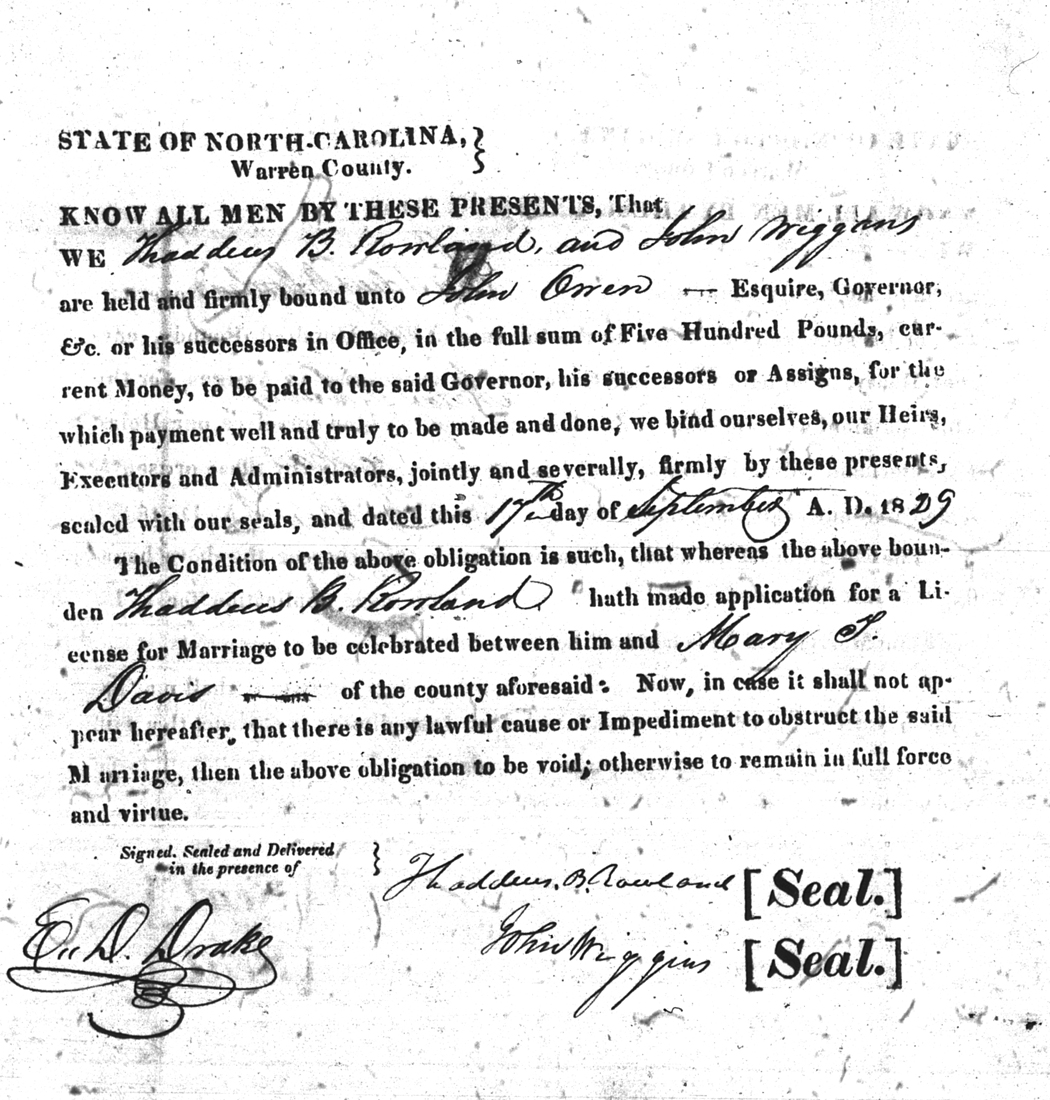 STATE OF NORTH-CAROLINA, }
Warren County.
KNOW ALL MEN BY THESE PRESENTS, That
WE Thaddeus B. Rowland, and John Wiggins
are held and firmly bound unto John Owen — Esquire, Governor,
&c. or his successors in Office, in the full sum of Five Hundred Pounds, cur-
rent Money, to be paid to the said Governor, his successors or Assigns, for the
which payment well and truly to be made and done, we bind ourselves, our Heirs,
Executors and Administrators, jointly and severally, firmly by these presents,
sealed with our seals, and dated this 17th day of September A. D. 1829
The Condition of the above obligation is such, that whereas the above boun-
den Thaddeus B. Rowland hath made application for a Li-
cense for Marriage to be celebrated between him and Mary
Davis — of the county aforesaid: Now, in case it shall not ap-
pear hereafter, that there is any lawful cause or Impediment to obstruct the said
Marriage, then the above obligation to be void; otherwise to remain in full force
and virtue.
Signed, Sealed and Delivered }
in the presence of
Thaddeus. B. Rowland [Seal.]
D. Drake
John Wiggins [Seal.]